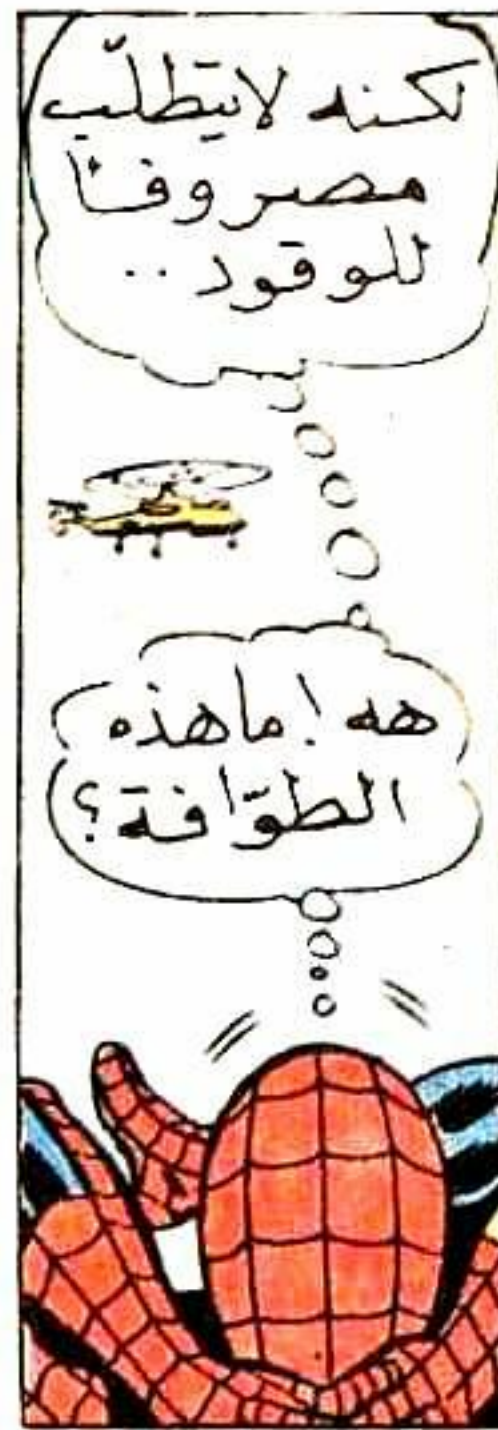 لكنه لايتطلّب
مصروفًا
للوقود ..
هه ! ماهذه
الطوّافة؟